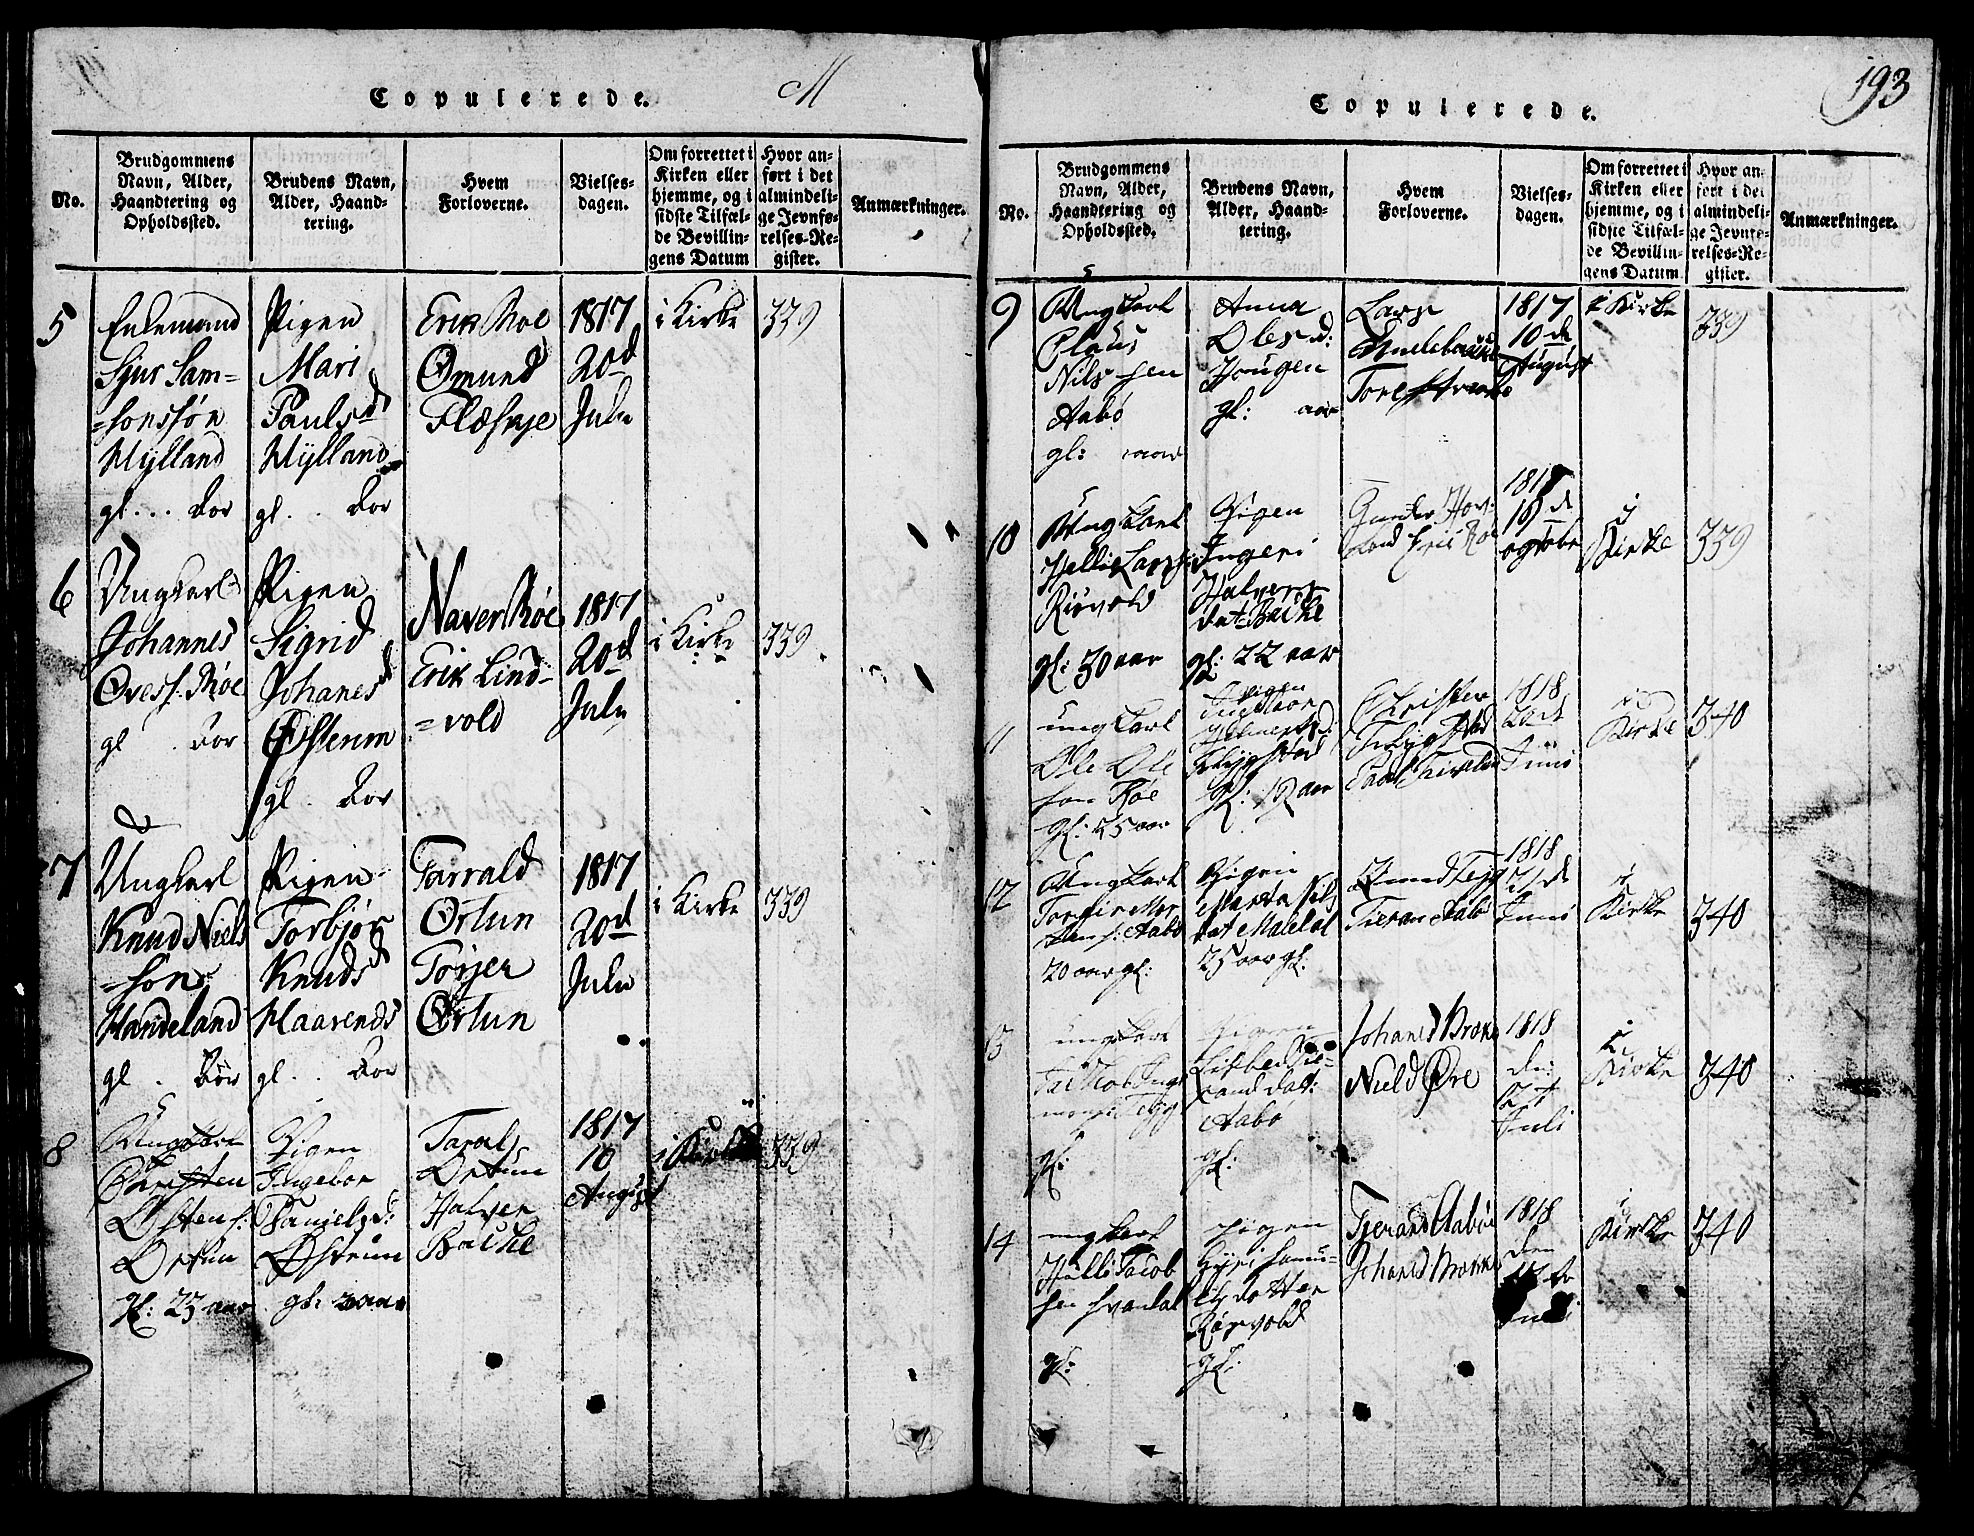 Copulerede.
M
No.
Brudgommens
Navn, Alder,
Haandtering og
Opholdssted.
Brudens Navn,
Alder, Haand-
tering.
Hvem
Forloverne.
Vielses-
dagen.
Om forrettet i
Kirken eller
hjemme, og i
sidste Tilfæl-
de Bevillin-
gens Datum
Hvor an-
ført i det
almindeli-
ge Jevnfø-
relses-Re-
gister.
Anmærkninger.
5
Enkemand
Sjur Sam=
=sonssøn
Mylland
gl... Aor
Pigen
Mari
Paulsd
Mylland
gl. . Aor
Erik Moe
Omund
Flæskje
1817
20d
Julu
i Kirke
339
6
Ungkerl
Johannes
Oves s. Moe
gl . Aor
Pigen
Sigrid
Johanesd
Østerum
gl . Aor
Naver Moe
Erik Lind-
=vold
1817
20d
Julu
i Kirke
339
7
Ungkerl
Knud Niels
=son
Mandeland
gl . Aor
Pigen
Torbjør
Knudsd
Maarends
gl. . Aor
Tarrald
Ortun
Torjer
Ortun
1817
20d
Julu
i Kirke
339
8
Ungkarl
Christen
Østens:
Ortun
gl: 23 aar
Pigen
Ingebor
Danielsd:
Østrum
gl: aar
Taral
Ortun
Halver
Bakke
1817
10
August
i Kirke
339
Copulerede.
193
No.
Brudgommens
Navn, Alder,
Haandtering og
Opholdssted.
Brudens Navn,
Alder, Haand-
tering.
Hvem
Forloverne.
Vielses-
dagen.
Om forrettet i
Kirken eller
hjemme, og i
sidste Tilfæl-
de Bevillin-
gens Datum.
Hvor an-
ført i det
almindeli-
ge Jevnfø-
relses-Re-
gister.
Anmærkninger.
9
Ungkarl
Claus
Nilssen
Aabø
gl: aar
Anna
Olesd:
Hougen
gl: aar
Lars
Tore
1817
10de
August
i Kirke
339
10
Ungkarl
Helli Lars
Risvold
gl: 30 aar
Pigen
Ingeri
Halvers
dat Bakke
gl: 22 aar
Gunder Hov-
land Eric Roe
1817
de
ogtobr
i
Kirke
339
11
ungkarl
Ole Ole
sen Roe
gl: 25 aar
Pigen
gl: 19 aar
Christen
1818
Juni
i
Kirke
340
12
Ungkarl
Aabø
20 aar gl:
Pigen
Marta Nils
dat Maledal
25 aar gl:
Aabø
1818
21de
Juni
i
Kirke
340
13
ungkarl
gl:
Pigen
Aabø
gl:
Johanes
Niels Øre
1818
den
27
Juli
i
Kirke
340
14
ungkarl
Helli Jacob
sen Svadal
gl:
Pigen
Siri Samu-
els datter
Risvold
gl:
Tjerand Aabøe
Johanes
1818
den
Juli
i
Kirke
340